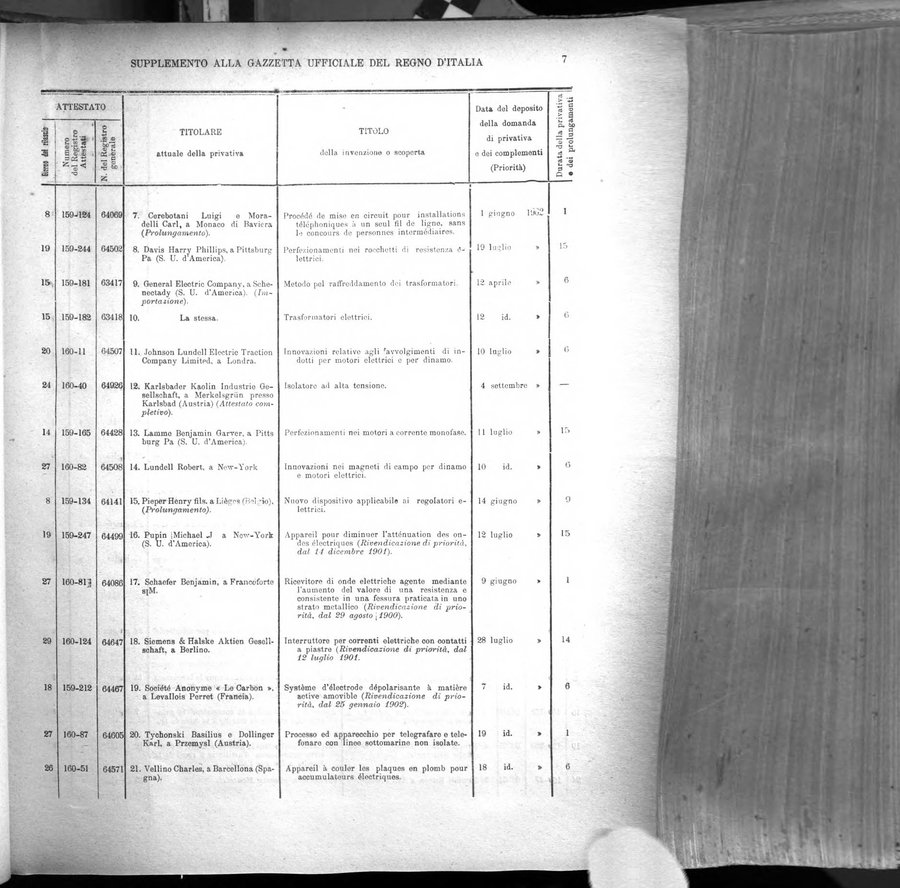 SUPPLEMENTO ALLA GAZZETTA UFFICIALE DEL REGNO D'ITALIA 7
ATTESTATO
Giorno del rilascio
Numero del Registro Attestati
N. del Registro generale
TITOLARE
attuale della privativa
TITOLO
della invenzione o scoperta
Data del deposito
della domanda
di privativa
e dei complementi
(Priorità)
Durata della privativa
e dei prolungamenti
8 159-124 64069 7. Cerebotani Luigi e Mora- Procédé de mise en circuit pour installations 1 giugno 1902 1
delli Carl, a Monaco di Baviera téléphoniques à un seul fil de ligne, sans
(Prolungamento). le concours de personnes intermédiaires.
19 159-244 64502 8. Davis Harry Phillips, a Pittsburg Perfezionamenti nei rocchetti di resistenza e- 19 luglio » 15
Pa (S. U. d'America). lettrici.
15 159-181 63417 9. General Electric Company, a Sche- Metodo pel raffreddamento dei trasformatori. 12 aprile » 6
nectady (S. U. d'America). (Im-
portazione).
15 159-182 63418 10. La stessa. Trasformatori elettrici. 12 id. » 6
20 160-11 64507 11. Johnson Lundell Electric Traction Innovazioni relative agli avvolgimenti di in- 10 luglio » 6
Company Limited, a Londra. dotti per motori elettrici e per dinamo.
24 160-40 64926 12. Karlsbader Kaolin Industrie Ge- Isolatore ad alta tensione. 4 settembre » —
sellschaft, a Merkelsgrün presso
Karlsbad (Austria) (Attestato com-
pletivo).
14 159-165 64428 13. Lamme Benjamin Garver, a Pitts Perfezionamenti nei motori a corrente monofase. 11 luglio » 15
burg Pa (S. U. d'America).
27 160-82 64508 14. Lundell Robert, a New-York Innovazioni nei magneti di campo per dinamo 10 id. » 6
e motori elettrici.
8 159-134 64141 15. Pieper Henry fils, a Lièges (Belgio). Nuovo dispositivo applicabile ai regolatori e- 14 giugno » 9
(Prolungamento). lettrici.
19 159-247 64499 16. Pupin Michael J a New-York Appareil pour diminuer l'atténuation des on- 12 luglio » 15
(S. U. d'America). des électriques (Rivendicazione di priorità,
dal 14 dicembre 1901).
27 160-81 64086 17. Schaefer Benjamin, a Francoforte Ricevitore di onde elettriche agente mediante 9 giugno » 1
s|M. l'aumento del valore di una resistenza e
consistente in una fessura praticata in uno
strato metallico (Rivendicazione di prio-
rità, dal 29 agosto 1900).
29 160-124 64647 18. Siemens & Halske Aktien Gesell- Interruttore per correnti elettriche con contatti 28 luglio » 14
schaft, a Berlino. a piastre (Rivendicazione di priorità, dal
12 luglio 1901.
18 159-212 64467 19. Société Anonyme « Le Carbon ». Système d'électrode dépolarisante à matière 7 id. » 6
a Levallois Perret (Francia). active amovible (Rivendicazione di prio-
rità, dal 25 gennaio 1902).
27 160-87 64605 20. Tychonski Basilius e Dollinger Processo ed apparecchio per telegrafare e tele- 19 id. » 1
Karl, a Przemysl (Austria). fonare con linee sottomarine non isolate.
26 160-51 64571 21. Vellino Charles, a Barcellona (Spa- Appareil à couler les plaques en plomb pour 18 id. » 6
gna). accumulateurs électriques.